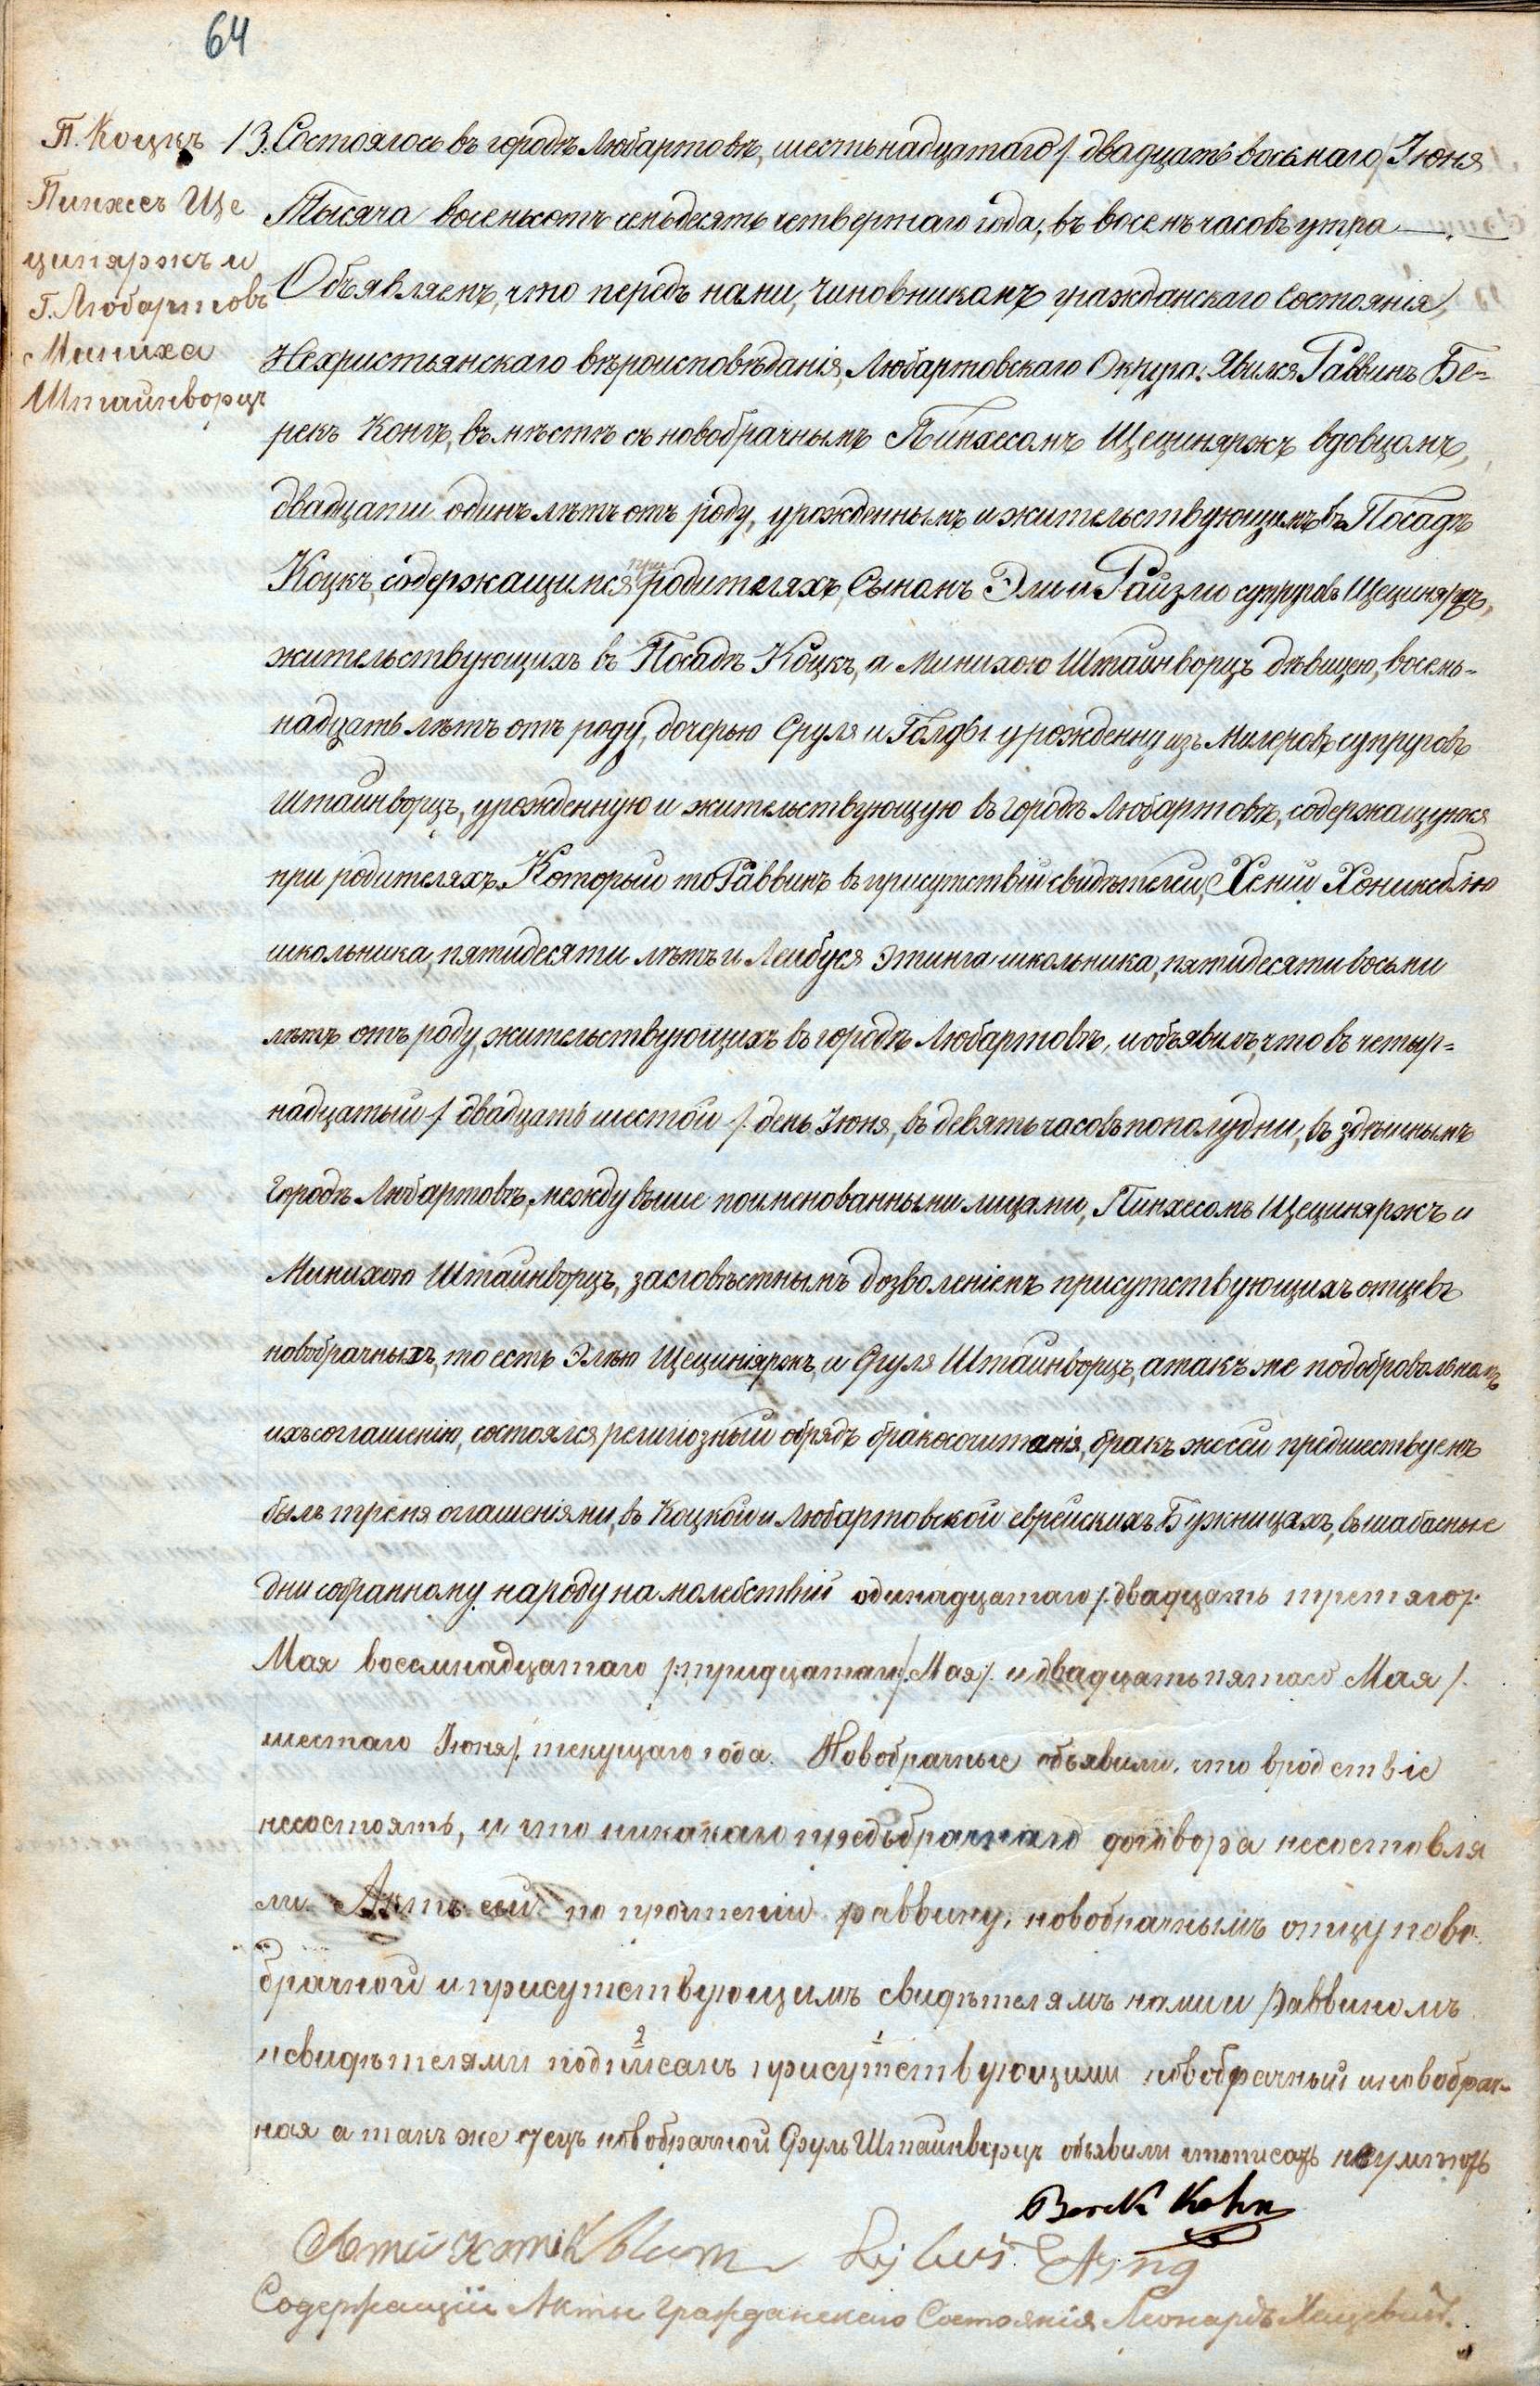 64
П. Коцкъ
Пинхесъ Ще
циняржъ и
Г. Любартовъ
Миниха
Штайнворцъ
13. Состоялось въ городѣ Любартовѣ, шестьнадцатаго /. двадцать восьмаго / Іюня
Тысяча восемьсотъ семьдесятъ четвертаго года, въ восемь часовъ утра —.—
Объявляемъ, что передъ нами, Чиновникомъ гражданскаго состоянія,
Нехристьянскаго вѣроисповѣданія, Любартовскаго Округа. Явился Раввинъ Бе=
рекъ Конъ, въ мѣстѣ съ новобрачнымъ Пинхесомъ Щециняржъ вдовцомъ,
двадцати одинъ лѣтъ отъ роду, урожденнымъ и жительствующимъ въ Посадѣ
Коцкъ, содержащимся при родителяхъ, Сыномъ Эли и Райзлю супруговъ Щециняржъ,
жительствующихъ въ Посадѣ Коцкъ, а Минихою Штайнворцъ дѣвицею, восемь-
надцать лѣтъ отъ роду, дочерью Сруля и Голды урожденну изъ Милеровъ супруговъ
Штайнворцъ, урожденную и жительствующую въ городѣ Любартовѣ, содержащуюся
при родителяхъ. Который то Раввинъ въ присутствіи свидѣтелей, Хеми Хоникеблю
школьника, пятидесяти лѣтъ и Лейбуся Этинга школьника, пятидесяти восьми
лѣтъ отъ роду, жительствующихъ въ городѣ Любартовѣ, и объявилъ, что въ четыр=
надцатый /. двадцать шестой /. день Іюня, въ девять часовъ пополудни, въ здѣшнымъ
городѣ Любартовѣ, между выше поименованными лицами, Пинхесомъ Щециняржъ и
Минихою Штайнворцъ, засловѣстнымъ дозволеніемъ присутствующихъ отцевъ
новобрачныхъ, то есть Элью Щециняржъ, и Сруля Штайнворцъ, а такъ же подобровольномъ
ихъ соглашенію, состоялся религіозный обрядъ бракосочитанія, бракъ же сей предшествуемъ
былъ тремя оглашеніями, въ Коцкой и Любартовской еврейскихъ Бужницахъ, въ шабасные
дни собранному народу на молебствіи одинадцатаго /. двадцать третяго /.
Мая восемнадцатаго /. тридцатаго /. Мая /. и двадцать пятаго Мая /.
шестаго Іюня /. текущаго года. Новобрачные объявили, что вродствіе
несостоятъ, и что никакаго предъбрачнаго договора несоставля
ли. Актъ сей по прочтеніи раввину, новобрачнымъ отцу ново
брачной и присутствующимъ свидѣтелямъ нами и раввиномъ
и свидѣтелями подписанъ присутствующими новобрачный и новобрач-
ная а такъ же отецъ новобрачной Сруль Штайнворцъ объявили что писать неумѣютъ
Berek Kohn
Chemii Honikblum Lejbuś Etyng
Содержащій Акты Гражданскаго Состоянія Леонардъ